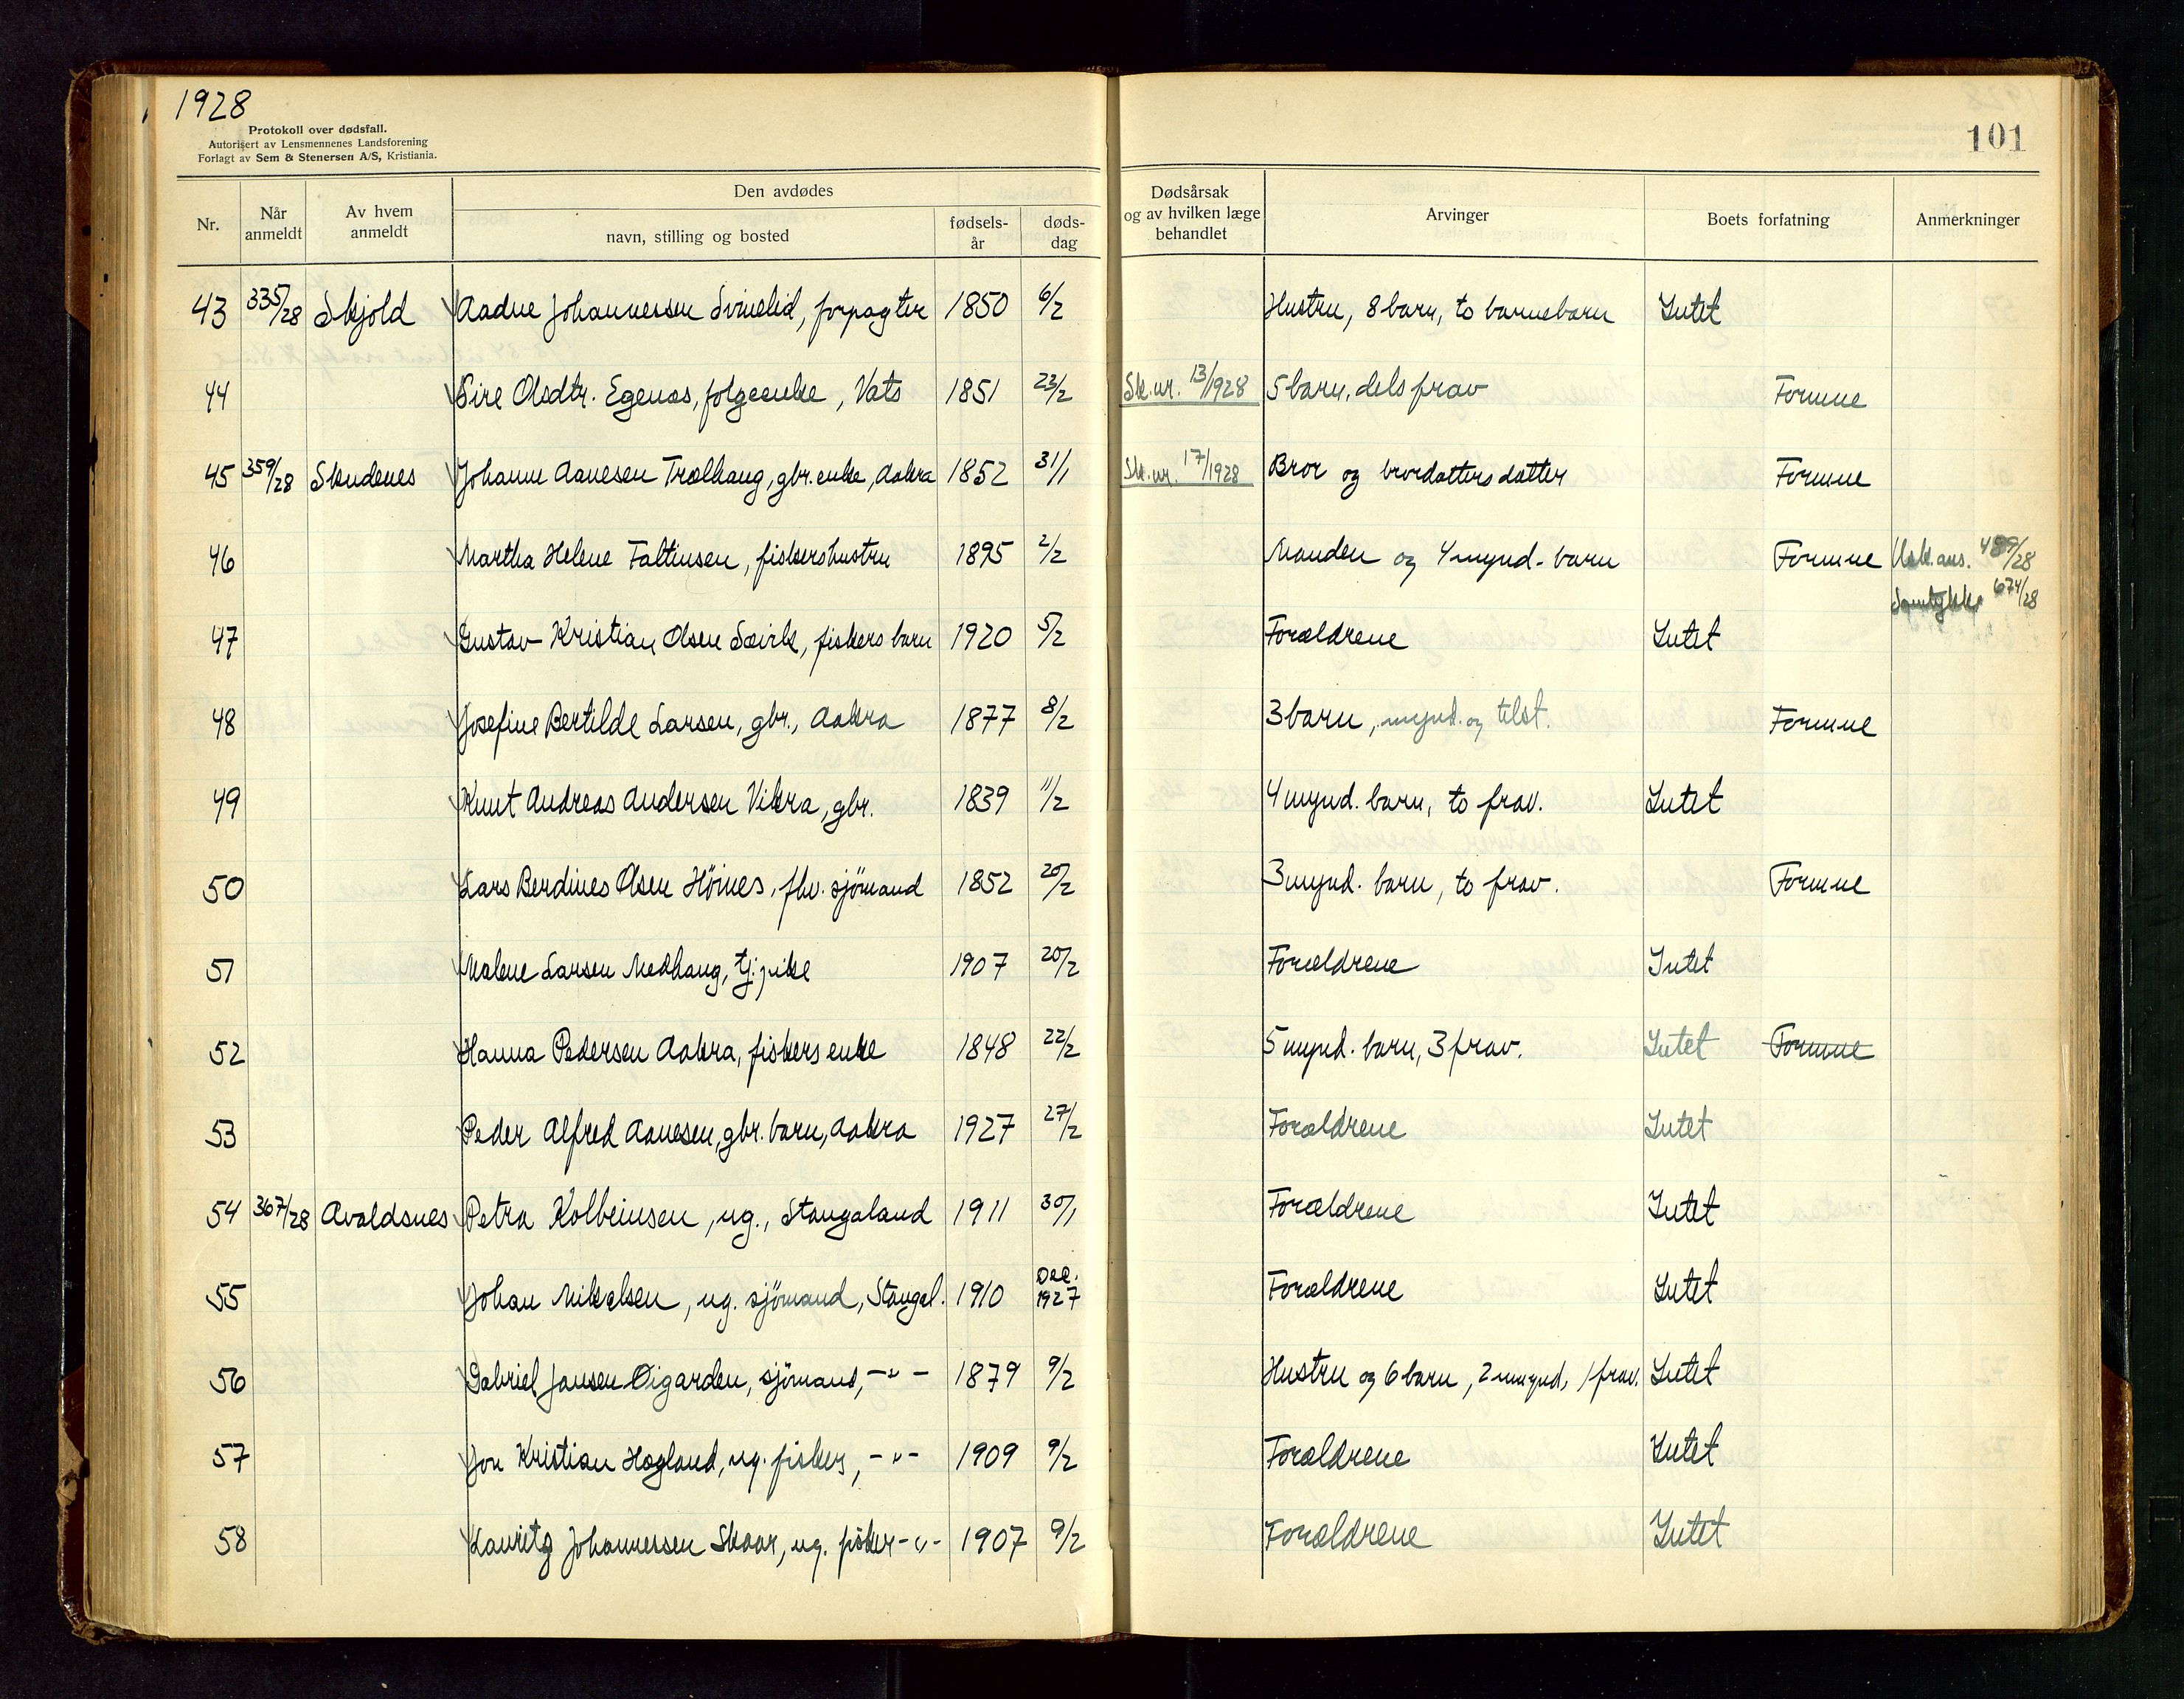 1928
Protokoll over dødsfall.
Autorisert av Lensmennenes Landsforening
Forlagt av Sem & Stenersen A/S, Kristiania.
101
Nr. Når anmeldt Av hvem anmeldt Den avdødes navn, stilling og bosted fødselsår dødsdag Dødsårsak og av hvilken læge behandlet Arvinger Boets forfatning Anmerkninger
43 335/28 Skjold Aadne Johannessen Svinelid, forpagter 1850 6/2 Hustru, 8 barn, to barnebarn Intet
44 Sire Olsdtr. Egenæs, følgeenke, Vats 1851 23/2 Sk.nr. 13/1928 5 barn, dels frav Formue
45 359/28 Skudenes Johanne Aanesen Trælhaug, gbr. enke, Aakra 1852 31/1 Sk.nr. 17/1928 Bror og brordatters datter Formue
46 Martha Helene Faltinsen, fiskershustru 1895 2/2 Manden og 4 mynd. barn Formue Usk.ans. 489/28
Samtykke 674/28
47 Gustav Kristian Olsen Sævik, fiskers barn 1920 5/2 Forældrene Intet
48 Josefine Bertilde Larsen, gbr., Aakra 1877 8/2 3 barn, mynd. og tilst. Formue
49 Knut Andreas Andersen Vikra, gbr. 1839 11/2 4 mynd. barn, to frav. Intet
50 Lars Berdines Olsen Höines, fhv. sjömand 1852 20/2 3 mynd. barn, to frav. Formue
51 Malene Larsen Medhaug, tj.pike 1907 20/2 Forældrene Intet
52 Hanna Pedersen Aakra, fiskers enke 1848 22/2 5 mynd. barn, 3 frav. Intet Formue
53 Peder Alfred Aanesen, gbr. barn, Aakra 1927 27/2 Forældrene Intet
54 367/28 Avaldsnes Petra Kolbeinsen, ug., Stangaland 1911 30/1 Forældrene Intet
55 Johan Mikalsen, ug. sjömand, Stangal. 1910 Des. 1927 Forældrene Intet
56 Gabriel Jansen Öigarden, sjömand, -"- 1879 9/2 Hustru og 6 barn, 2 mynd, 1 frav. Intet
57 Jon Kristian Hagland, ug. fisker, -"- 1909 9/2 Forældrene Intet
58 Lauritz Johannessen Skaar, ug. fisker -"- 1907 9/2 Forældrene Intet